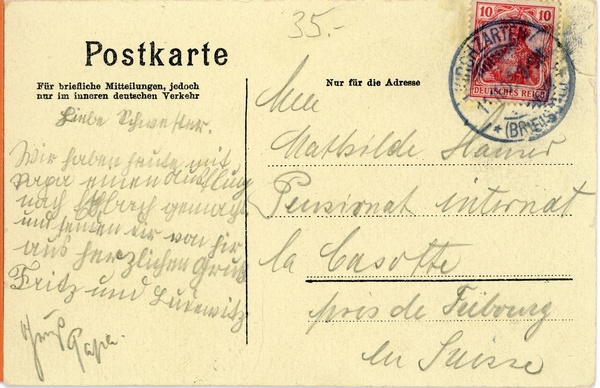 35.-
Postkarte
Für briefliche Mitteilungen, jedoch
nur im inneren deutschen Verkehr
Nur für die Adresse
10 10
DEUTSCHES REICH
KIRCHZARTEN
(BREISGAU)
Liebe Schwester.
Wir haben heute mit
Papa einen Ausflug
nach gemacht
und senden dir von hir
aus herzlichen Gruß
Fritz und Ludewitz
Gruß
Papa.
Mathilde Hauser
Pensionat internat
la Casotte
près de Fribourg
en Suisse